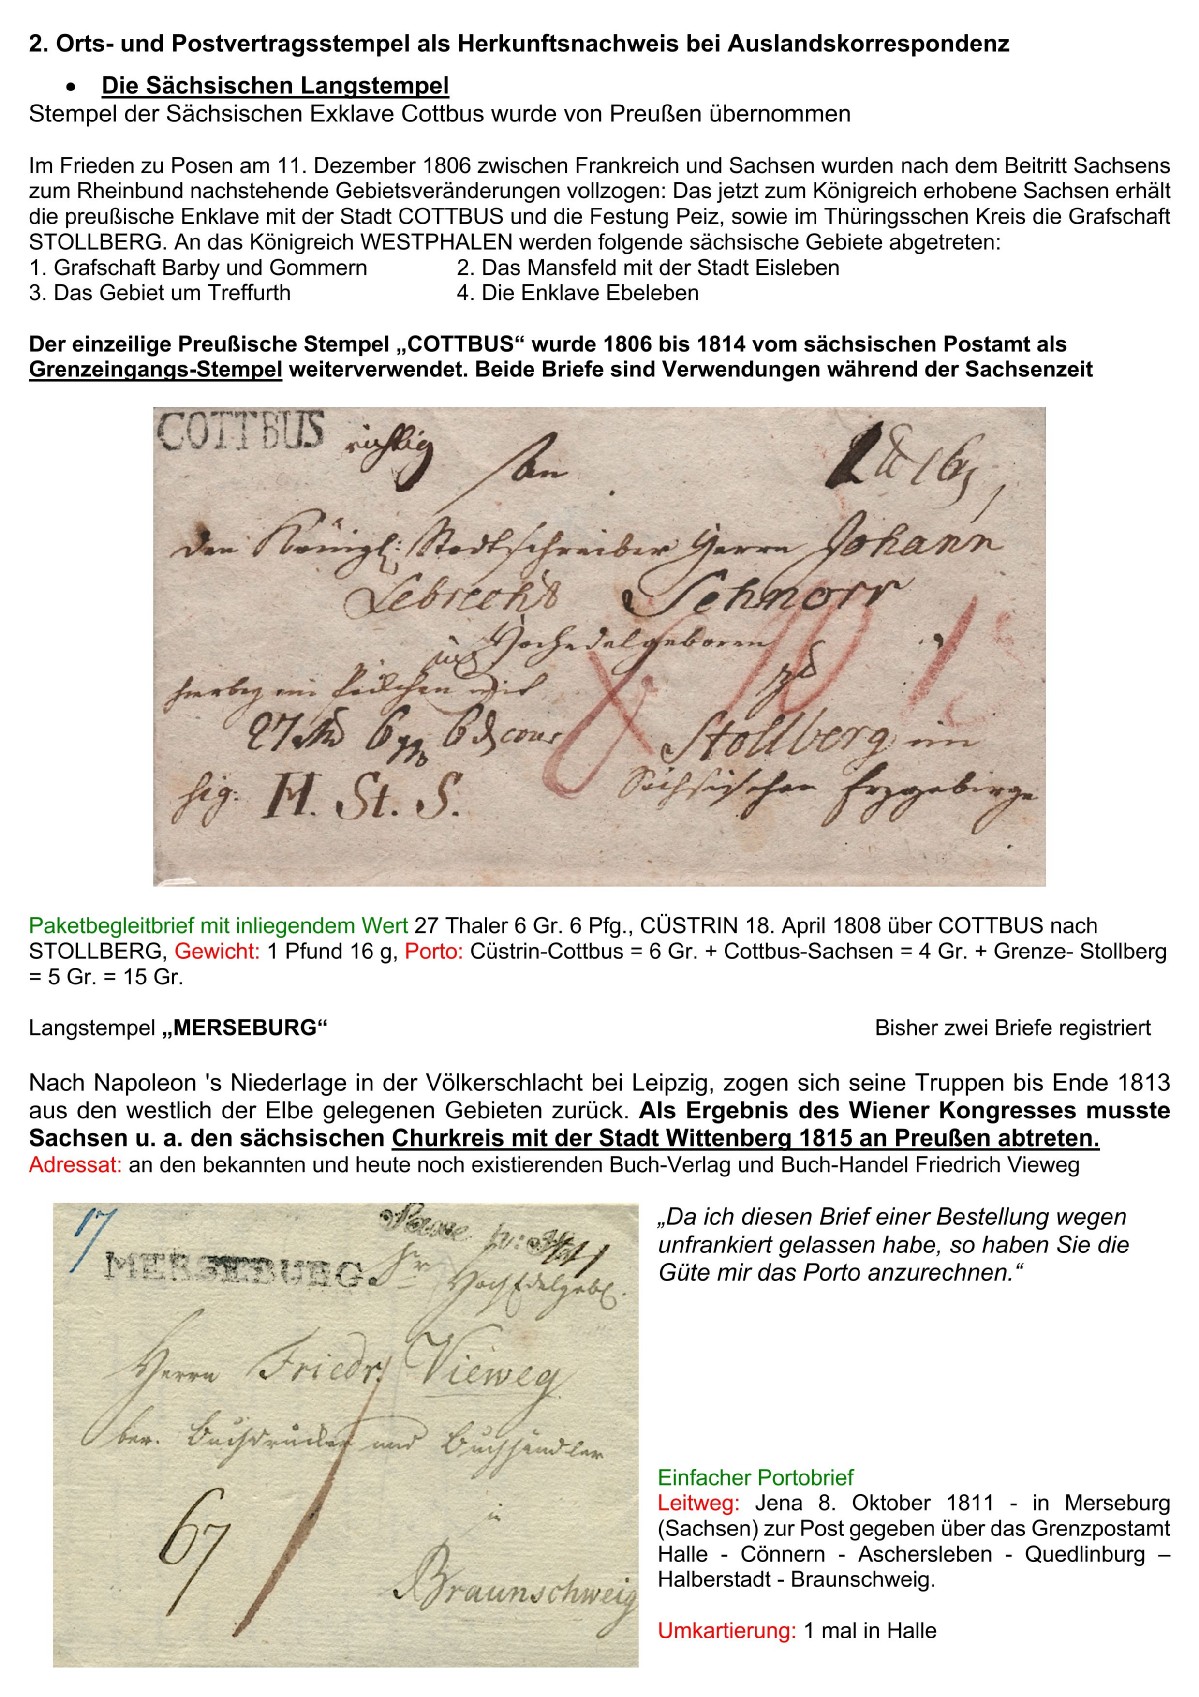 2. Orts- und Postvertragsstempel als Herkunftsnachweis bei Auslandskorrespondenz
• Die Sächsischen Langstempel
Stempel der Sächsischen Exklave Cottbus wurde von Preußen übernommen
Im Frieden zu Posen am 11. Dezember 1806 zwischen Frankreich und Sachsen wurden nach dem Beitritt Sachsens
zum Rheinbund nachstehende Gebietsveränderungen vollzogen: Das jetzt zum Königreich erhobene Sachsen erhält
die preußische Enklave mit der Stadt COTTBUS und die Festung Peiz, sowie im Thüringsschen Kreis die Grafschaft
STOLLBERG. An das Königreich WESTPHALEN werden folgende sächsische Gebiete abgetreten:
1. Grafschaft Barby und Gommern 2. Das Mansfeld mit der Stadt Eisleben
3. Das Gebiet um Treffurth 4. Die Enklave Ebeleben
Der einzeilige Preußische Stempel „COTTBUS“ wurde 1806 bis 1814 vom sächsischen Postamt als
Grenzeingangs-Stempel weiterverwendet. Beide Briefe sind Verwendungen während der Sachsenzeit
COTTBUS richtig
An
den Königl: Stadtschreiber Herrn Johann
Lebrecht Schnorr
Hochedelgeboren
hierbey ein
27 6 6
Stollberg im
sig: H. St. S. Sächsischen Erzgebirge
Paketbegleitbrief mit inliegendem Wert 27 Thaler 6 Gr. 6 Pfg., CÜSTRIN 18. April 1808 über COTTBUS nach
STOLLBERG, Gewicht: 1 Pfund 16 g, Porto: Cüstrin-Cottbus = 6 Gr. + Cottbus-Sachsen = 4 Gr. + Grenze- Stollberg
= 5 Gr. = 15 Gr.
Langstempel „MERSEBURG“ Bisher zwei Briefe registriert
Nach Napoleon 's Niederlage in der Völkerschlacht bei Leipzig, zogen sich seine Truppen bis Ende 1813
aus den westlich der Elbe gelegenen Gebieten zurück. Als Ergebnis des Wiener Kongresses musste
Sachsen u. a. den sächsischen Churkreis mit der Stadt Wittenberg 1815 an Preußen abtreten.
Adressat: an den bekannten und heute noch existierenden Buch-Verlag und Buch-Handel Friedrich Vieweg
17
MERSEBURG.
Herrn Friedr. Vieweg
ber. Buchdrucker und Buchhändler
in
67
Braunschweig
„Da ich diesen Brief einer Bestellung wegen
unfrankiert gelassen habe, so haben Sie die
Güte mir das Porto anzurechnen.“
Einfacher Portobrief
Leitweg: Jena 8. Oktober 1811 - in Merseburg
(Sachsen) zur Post gegeben über das Grenzpostamt
Halle - Cönnern - Aschersleben - Quedlinburg –
Halberstadt - Braunschweig.
Umkartierung: 1 mal in Halle